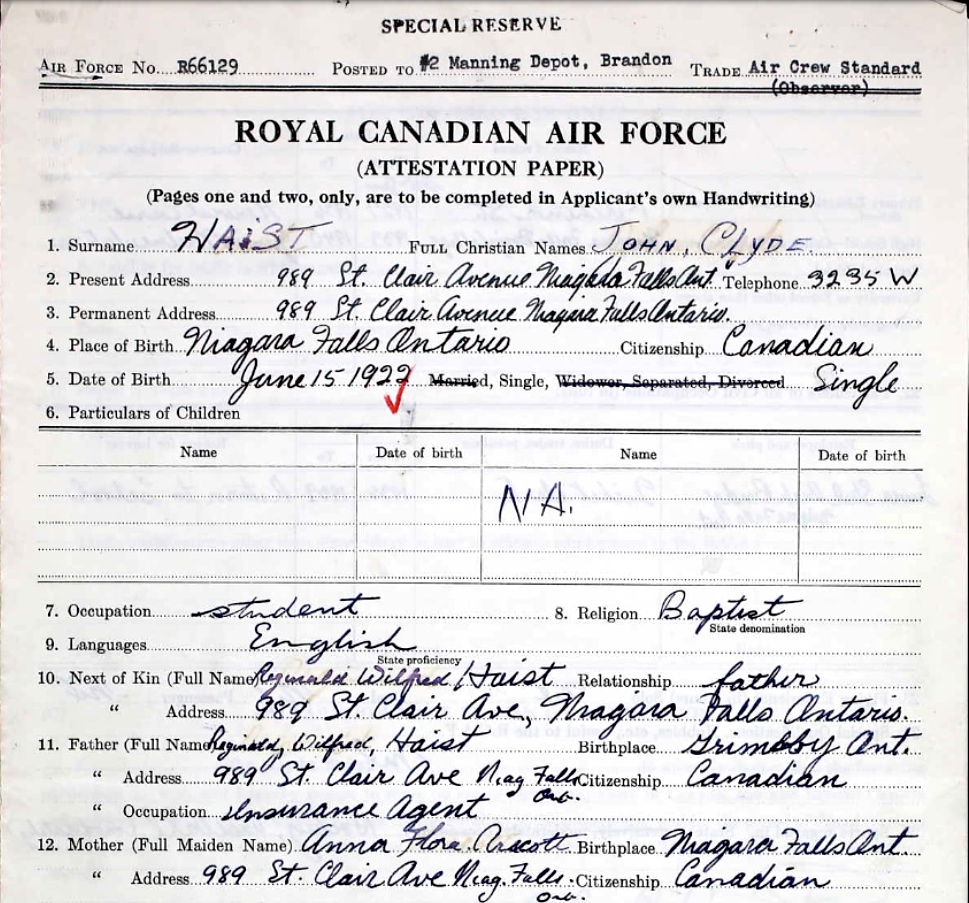 SPECIAL RESERVE
AIR FORCE No. R66129 POSTED TO #2 Manning Depot, Brandon TRADE Air Crew Standard
(Observer)
ROYAL CANADIAN AIR FORCE
(ATTESTATION PAPER)
(Pages one and two, only, are to be completed in Applicant's own Handwriting)
1. Surname HAIST FULL Christian Names JOHN, CLYDE
2. Present Address 989 St. Clair Avenue Niagara Falls Ont. Telephone 3235 W
3. Permanent Address 989 St. Clair Avenue Niagara Falls Ontario.
4. Place of Birth Niagara Falls Ontario Citizenship Canadian
5. Date of Birth June 15 1922 Married, Single, Widower, Separated, Divorced Single
6. Particulars of Children
Name Date of birth Name Date of birth
N A.
7. Occupation student 8. Religion Baptist
State denomination
9. Languages English
State proficiency
10. Next of Kin (Full Name) Reginald Wilfred Haist Relationship father
" Address 989 St. Clair Ave, Niagara Falls Ontario.
11. Father (Full Name) Reginald, Wilfred, Haist Birthplace Grimsby Ont.
" Address 989 St. Clair Ave Niag. Falls Citizenship Canadian
Ont.
" Occupation Insurance Agent
12. Mother (Full Maiden Name) Anna Flora Birthplace Niagara Falls Ont.
" Address 989 St. Clair Ave Niag. Falls. Citizenship Canadian
Ont.